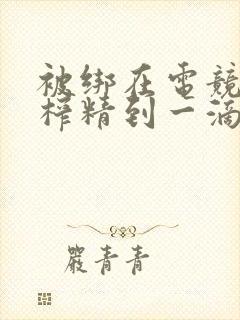 被绑在电競
榨精到一滴
嚴青青